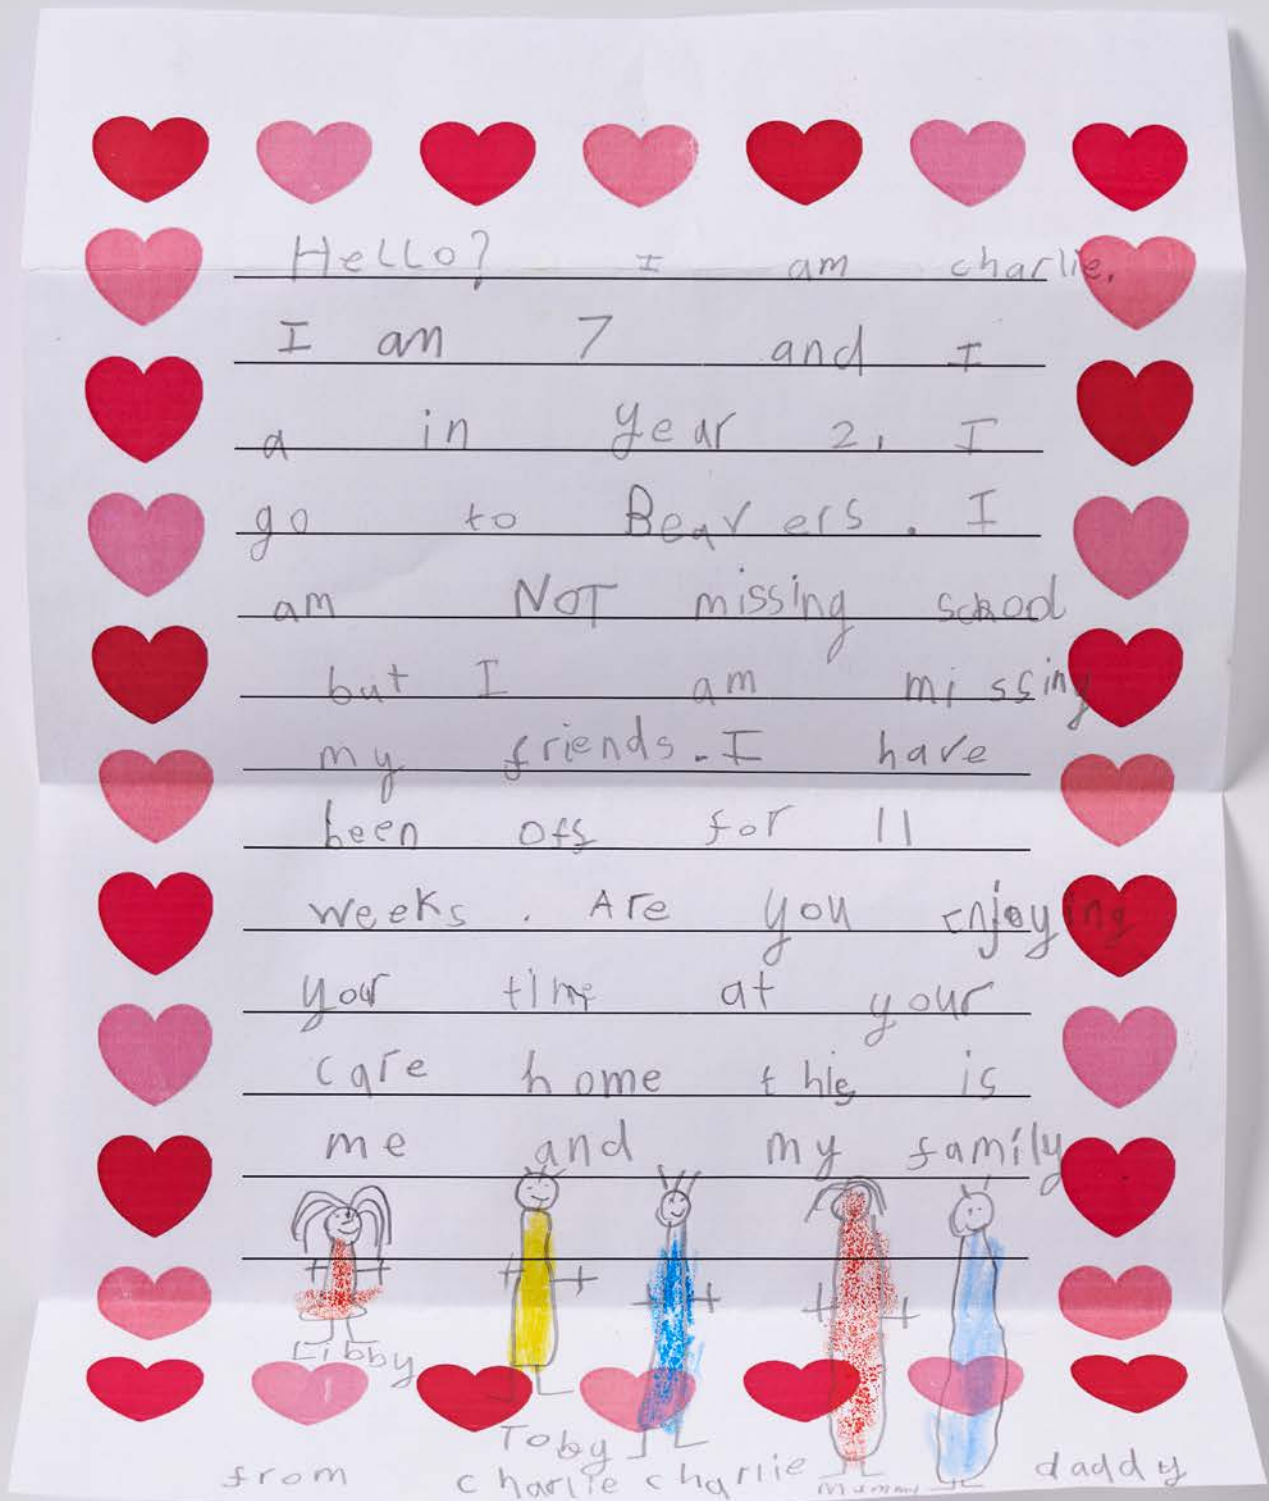 Hello? I am charlie.
I am 7 and I
a in year 2, I
go to Beavers. I
am NOT missing school
but I am missing
my friends. I have
been off for 11
weeks. Are you enjoying
your time at your
care home this is
me and my family
Libby
Toby
from charlie charlie mummy daddy